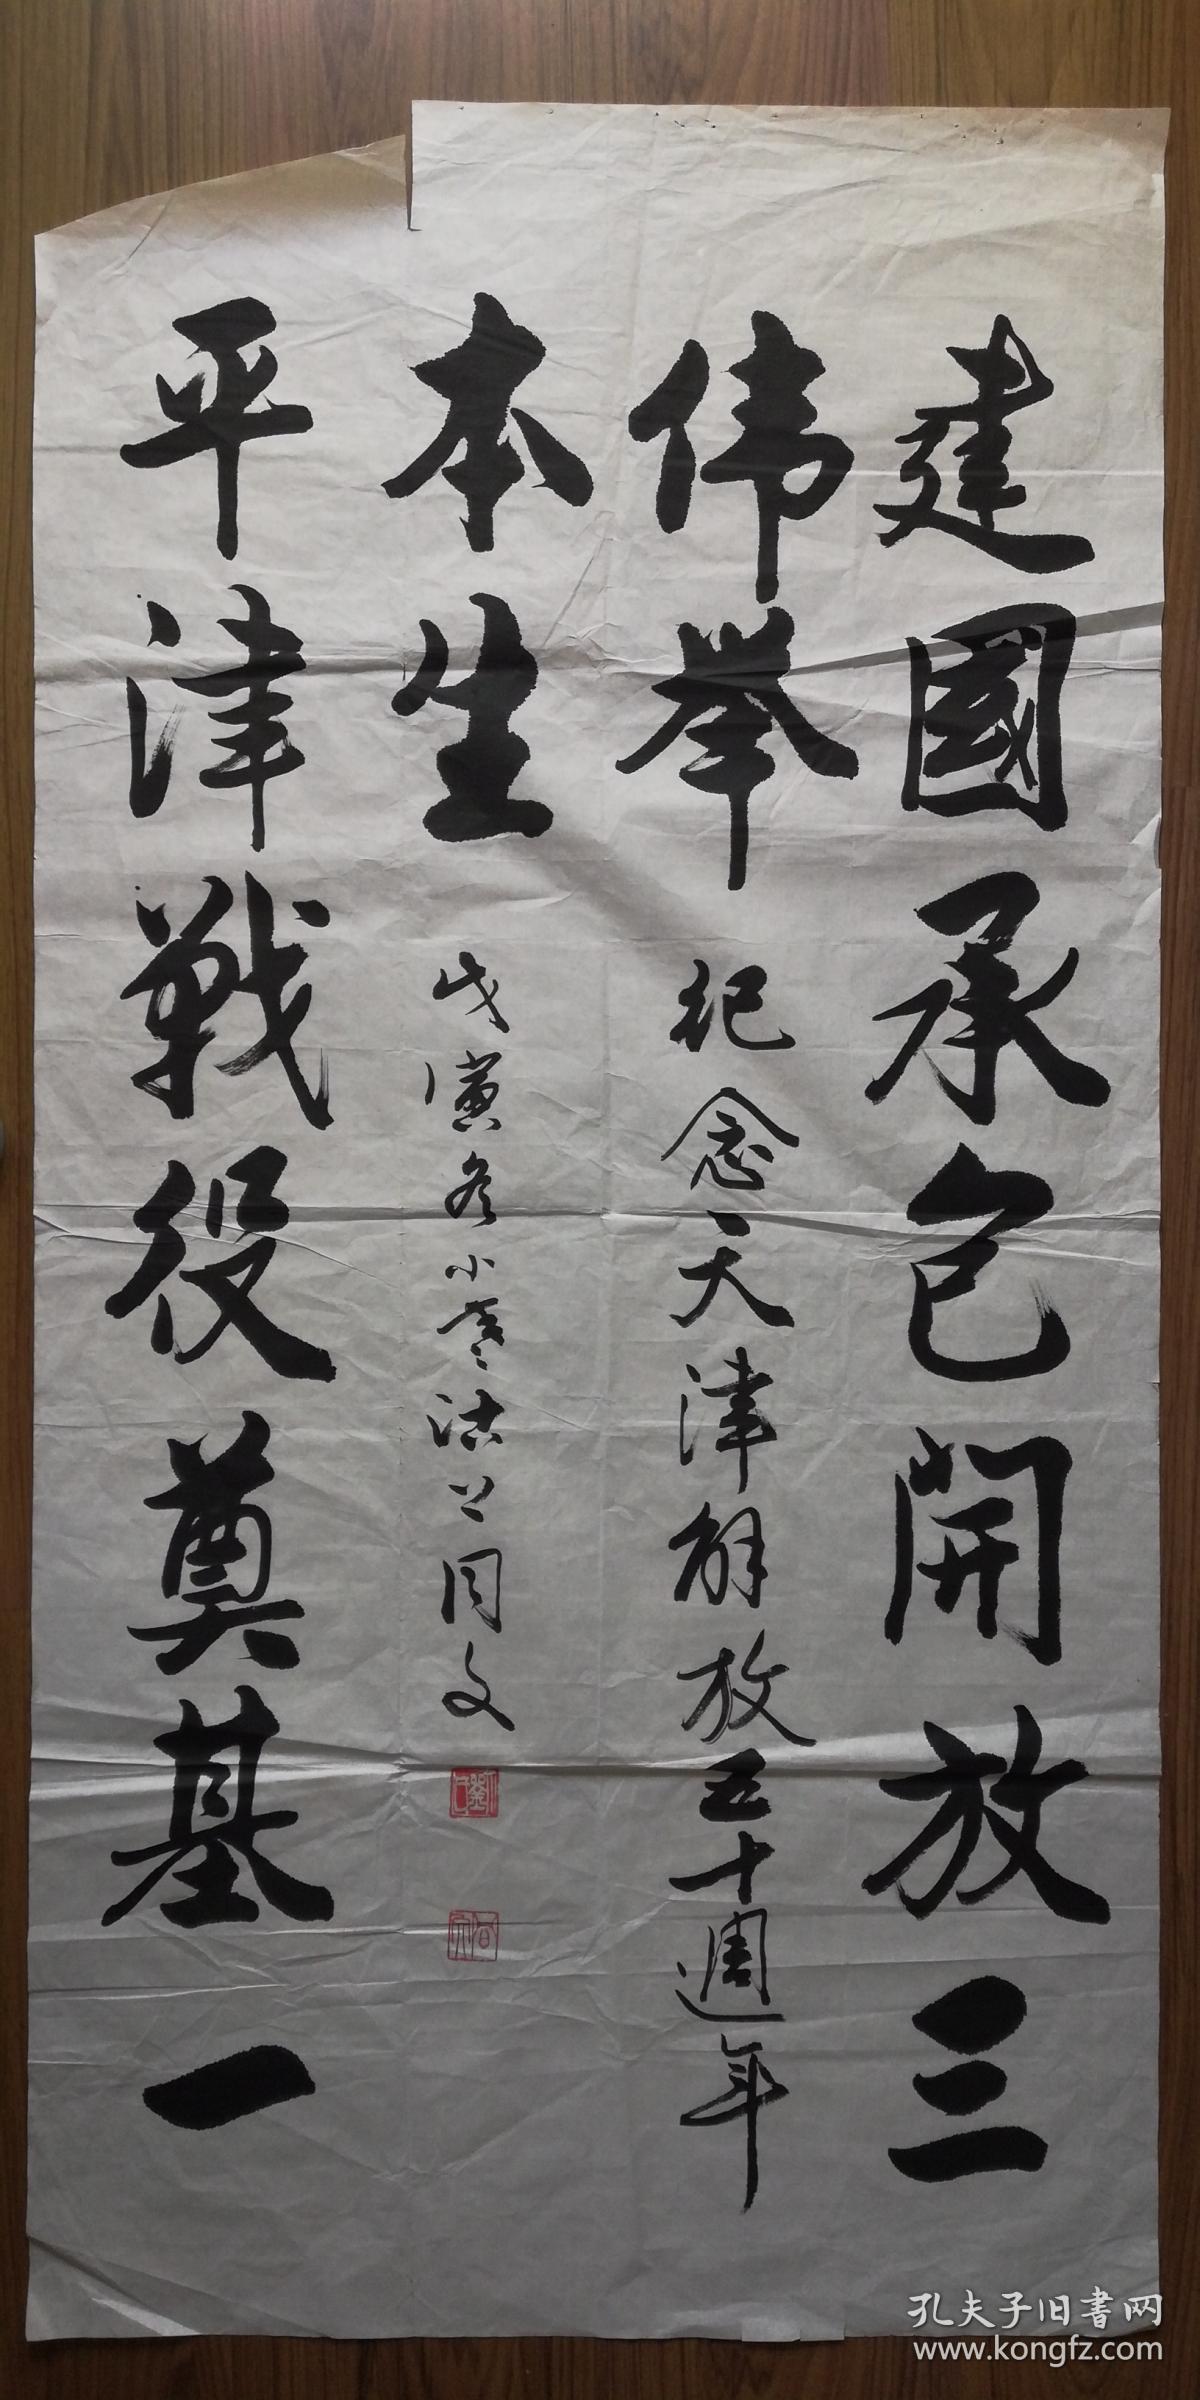 建國承包開放三
伟举
纪念天津解放五十週年
平津戰役奠基一
本生
戊寅冬小寒沽上同文
同文
孔夫子旧書网
www.kongfz.com